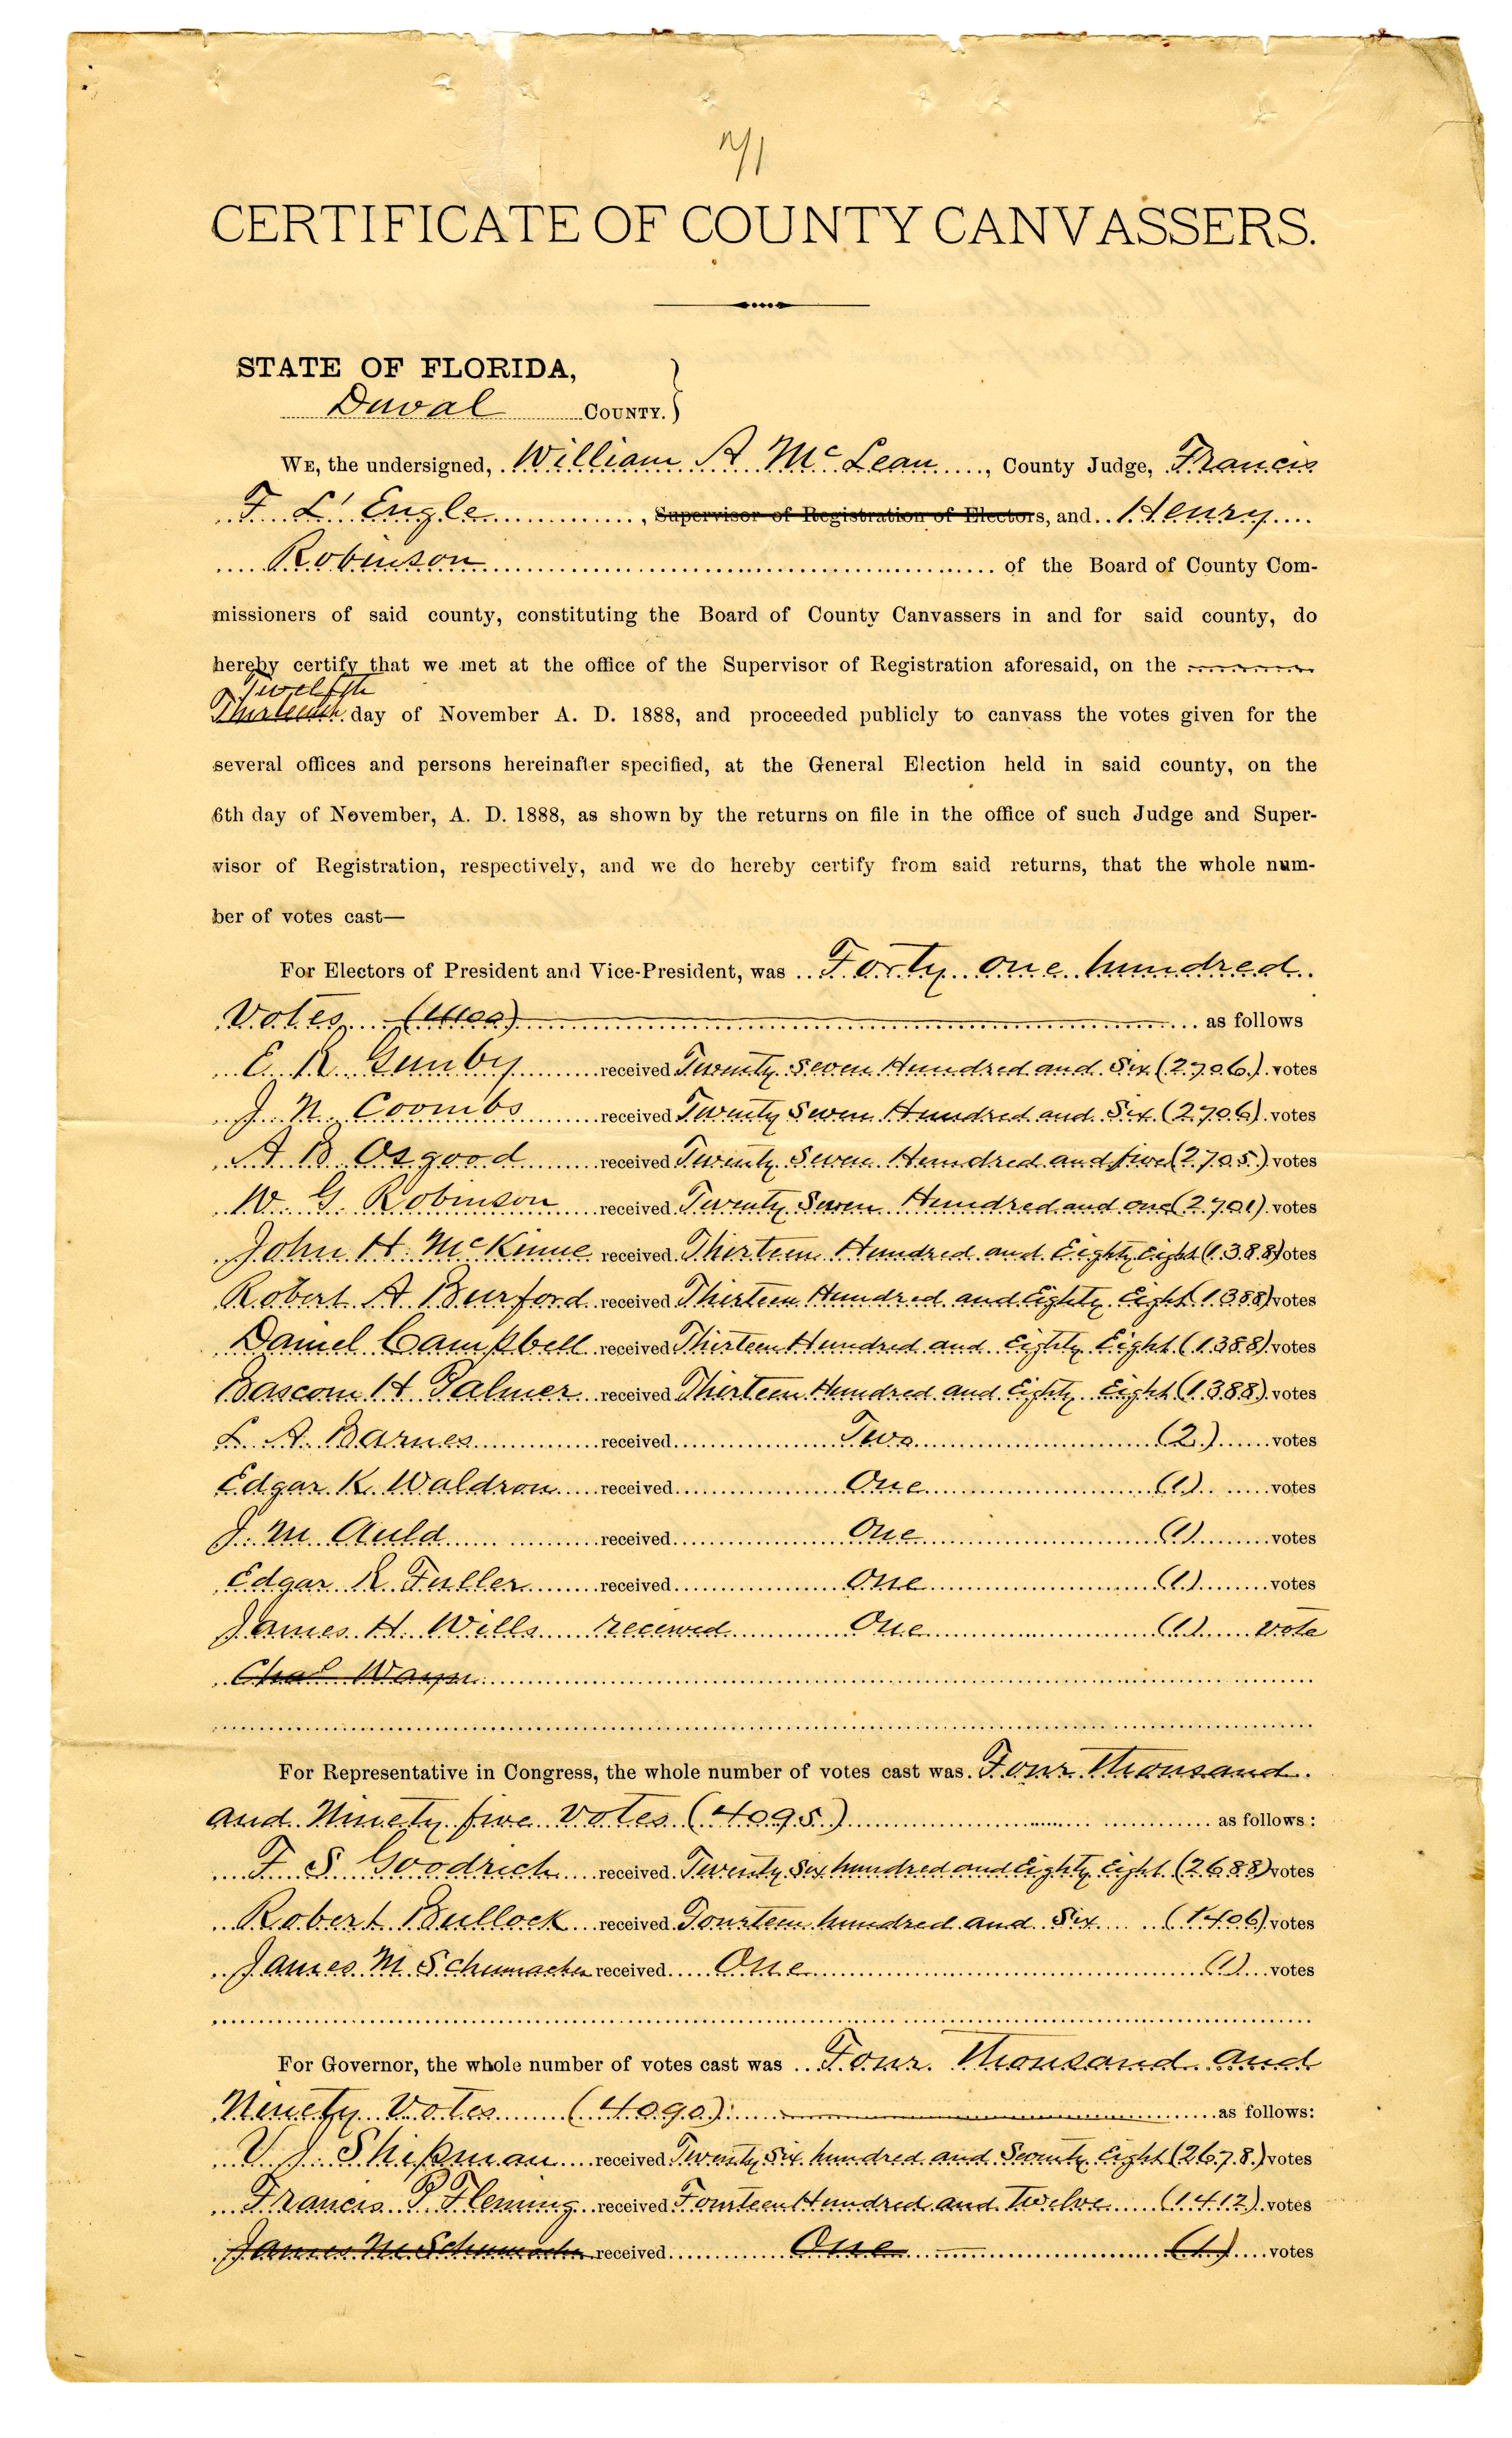 CERTIFICATE OF COUNTY CANVASSERS.
STATE OF FLORIDA,
Duval COUNTY.
WE, the undersigned, William A McLean, County Judge, Francis
F L'Engle, Supervisor of Registration of Electors, and Henry
Robinson of the Board of County Com-
missioners of said county, constituting the Board of County Canvassers in and for said county, do
hereby certify that we met at the office of the Supervisor of Registration aforesaid, on the
Twelfth
Thirteenth day of November A. D. 1888, and proceeded publicly to canvass the votes given for the
several offices and persons hereinafter specified, at the General Election held in said county, on the
6th day of November, A. D. 1888, as shown by the returns on file in the office of such Judge and Super-
visor of Registration, respectively, and we do hereby certify from said returns, that the whole num-
ber of votes cast—
For Electors of President and Vice-President, was Forty one hundred
Votes (4100) as follows
E. R. Gunby received Twenty Seven Hundred and Six (2706) votes
J. N. Coombs received Twenty Seven Hundred and Six (2706) votes
A B Osgood received Twenty Seven Hundred and five (2705) votes
W. G. Robinson received Twenty Seven Hundred and one (2701) votes
John H. McKinne received Thirteen Hundred and Eighty Eight (1388) votes
Robert A Burford received Thirteen Hundred and Eighty Eight (1388) votes
Daniel Campbell received Thirteen Hundred and Eighty Eight (1388) votes
Bascom H Palmer received Thirteen Hundred and Eighty Eight (1388) votes
L. A. Barnes received Two (2) votes
Edgar K. Waldron received One (1) votes
J. M Auld received One (1) votes
Edgar R. Fuller received One (1) votes
James H. Wills received One (1) vote
Chas
For Representative in Congress, the whole number of votes cast was Four Thousand
and Ninety five votes (4095) as follows:
F. S. Goodrich received Twenty Six hundred and Eighty Eight (2688) votes
Robert Bullock received Fourteen hundred and Six (1406) votes
James M Schumacher received One (1) votes
For Governor, the whole number of votes cast was Four Thousand and
Ninety Votes (4090) as follows:
V. J. Shipman received Twenty Six hundred and Seventy Eight (2678) votes
Francis P Fleming received Fourteen Hundred and Twelve (1412) votes
James M Schumacher received One (1) votes